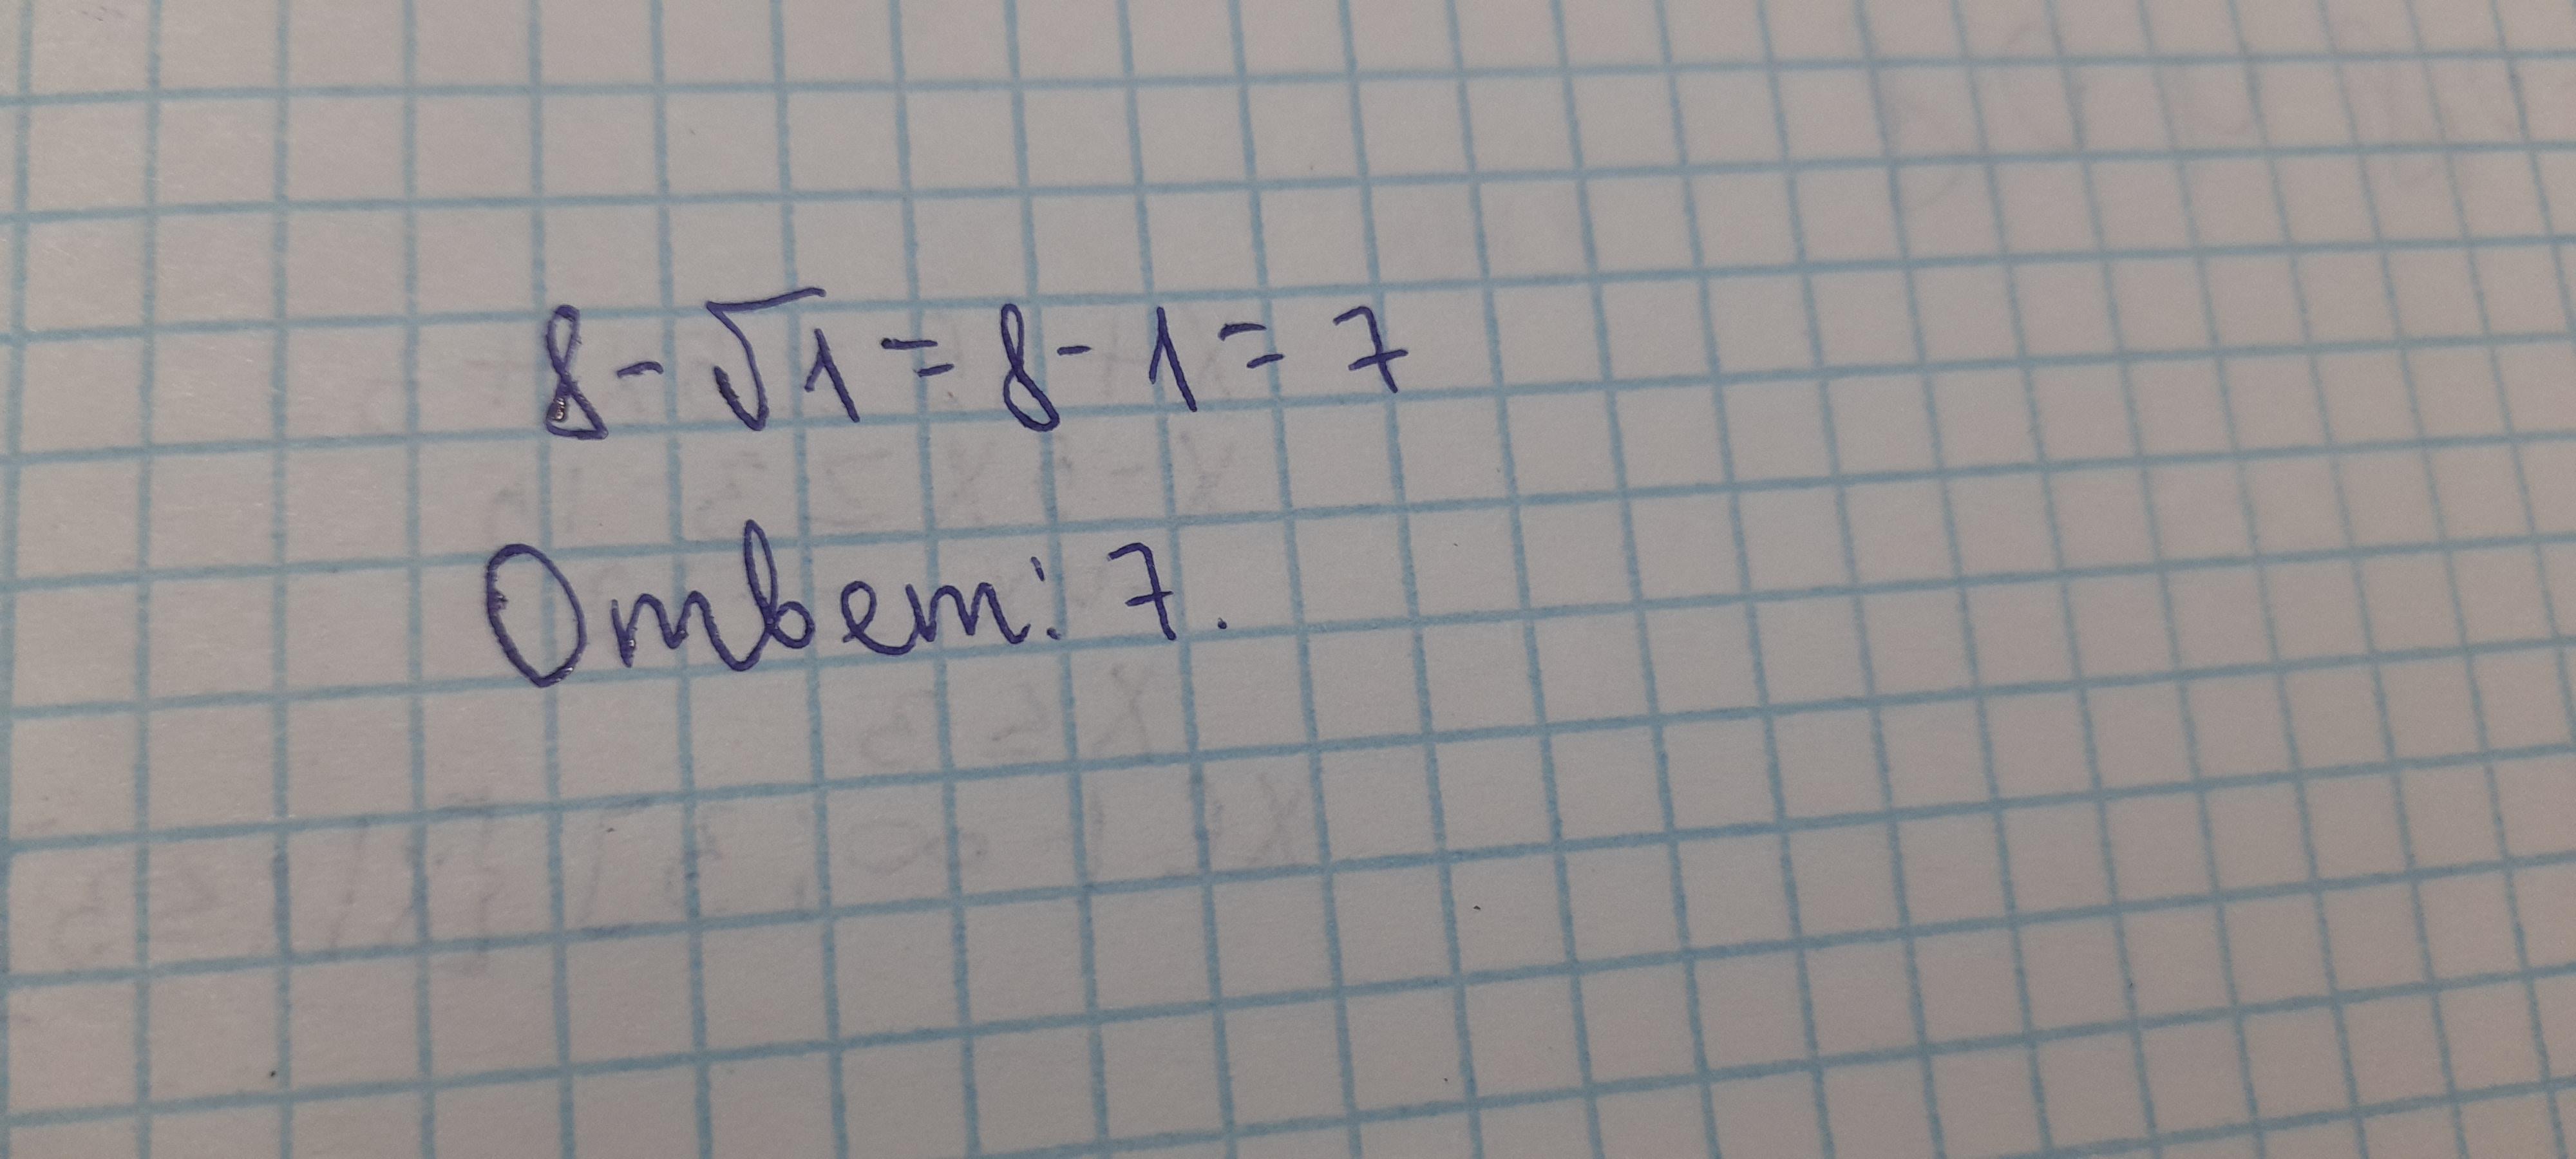 8 - √1 = 8 - 1 = 7
Ответ: 7.